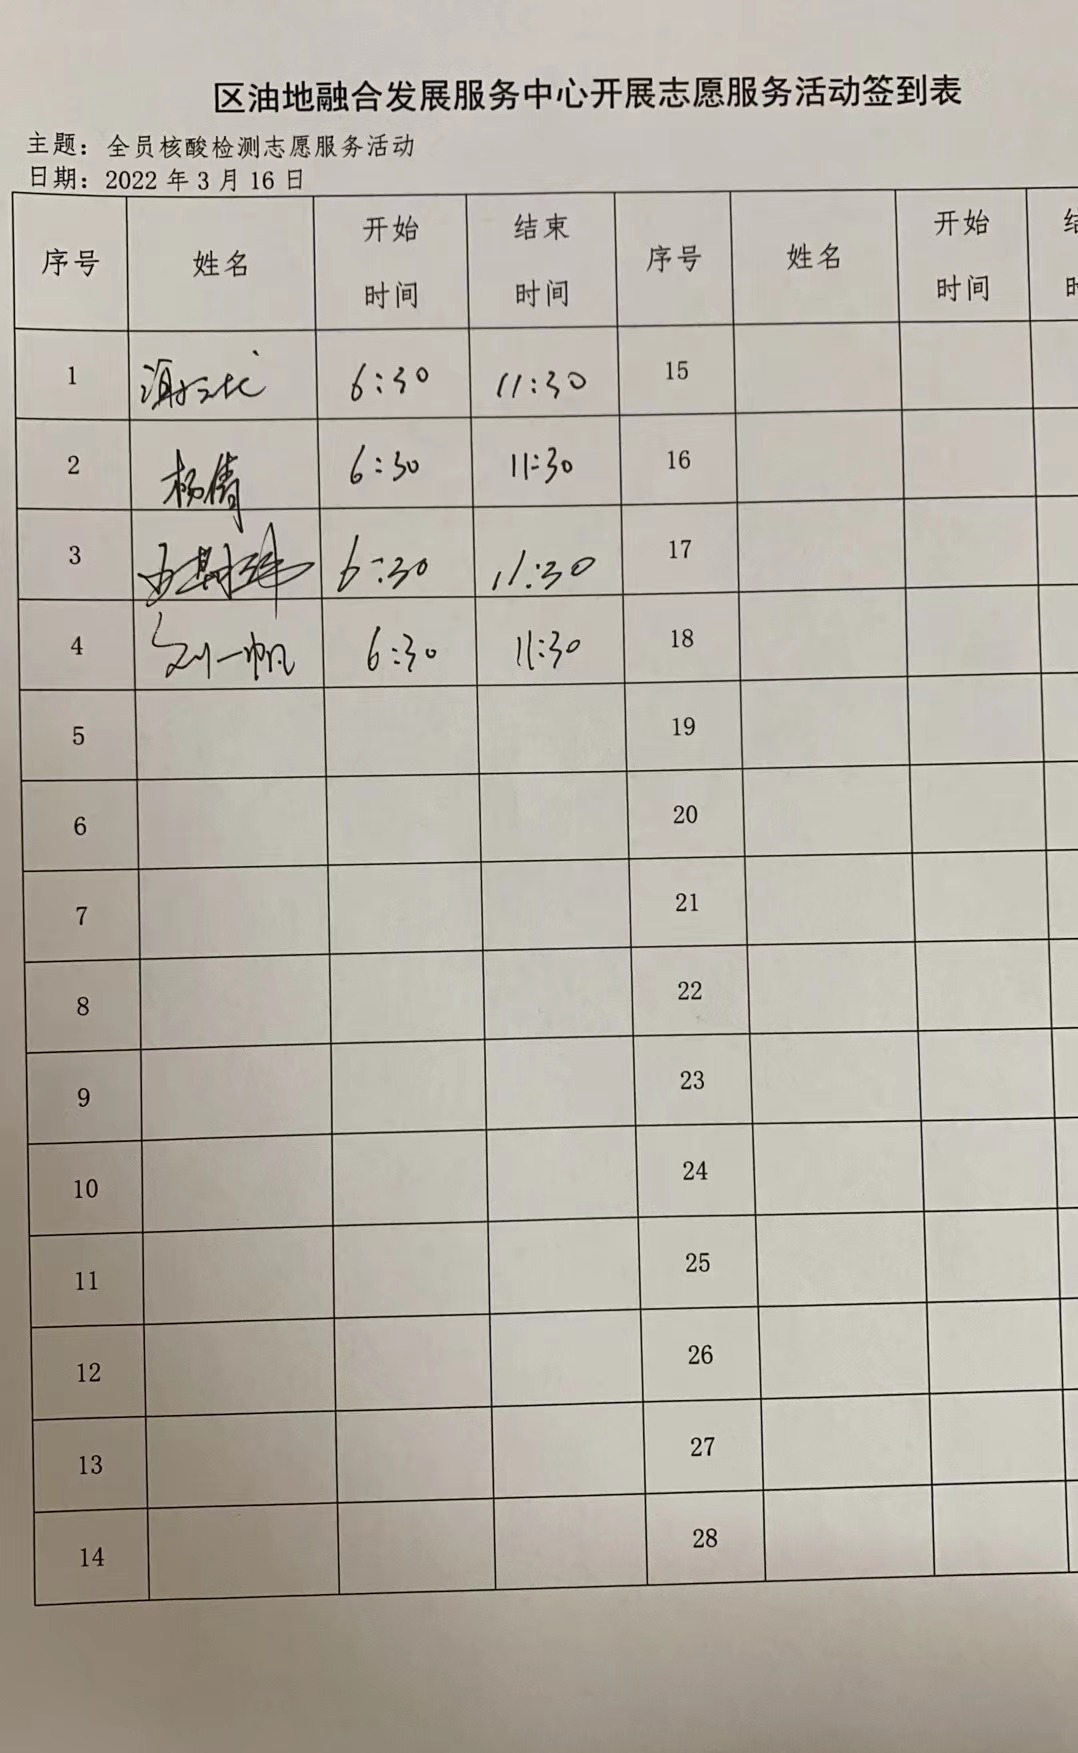 区油地融合发展服务中心开展志愿服务活动签到表
主题：全员核酸检测志愿服务活动
日期：2022 年 3 月 16 日
序号 姓名 开始时间 结束时间 序号 姓名 开始时间
1 6:30 11:30 15
2 杨倩 6:30 11:30 16
3 6:30 11:30 17
4 刘一帆 6:30 11:30 18
5 19
6 20
7 21
8 22
9 23
10 24
11 25
12 26
13 27
14 28